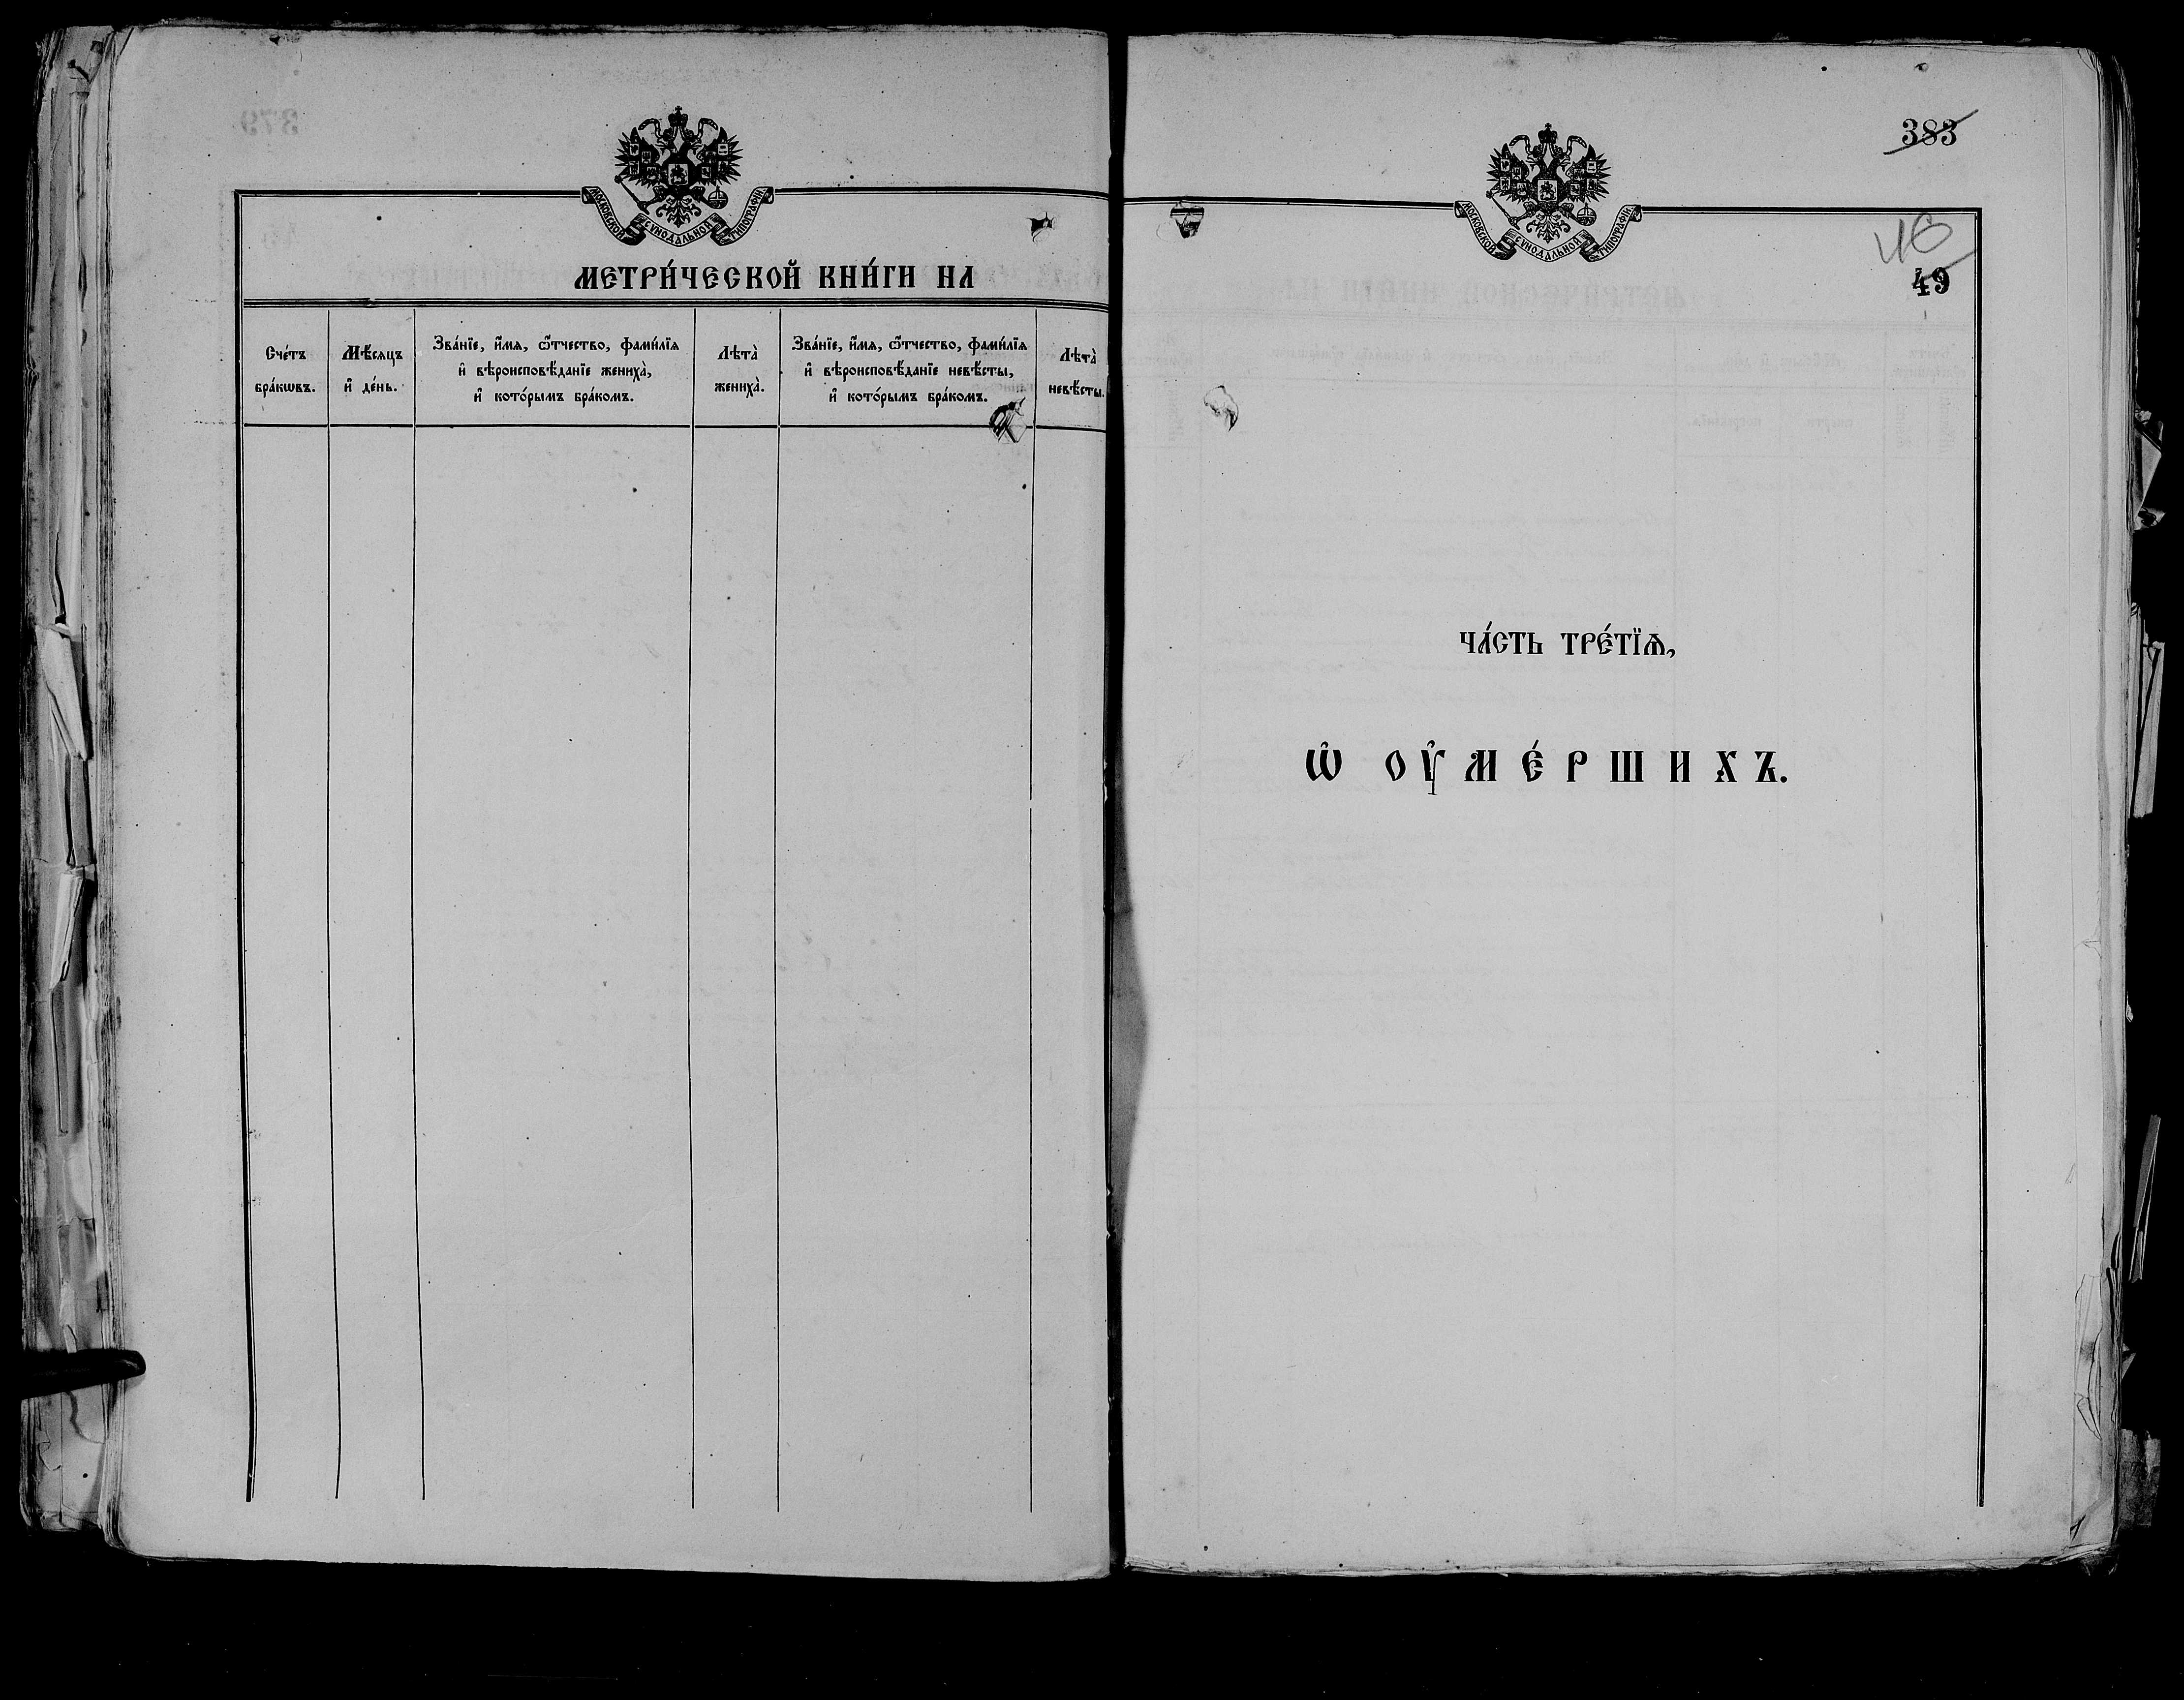 МОСКОВСКОЙ СѴНОДАЛЬНОЙ ТИПОГРАФІИ.
МЕТРИ́ЧЕСКОЙ КНИ́ГИ НА
Сче́тъ бра́кѡвъ.
Мѣ́сяцъ и҆ де́нь.
Зва́нїе, и҆́мѧ, ѻ҆́тчество, фами́лїѧ
и҆ вѣроисповѣ́данїе жениха̀,
и҆ кото́рымъ бра́комъ.
Лѣта̀ жениха̀.
Зва́нїе, и҆́мѧ, ѻ҆́тчество, фами́лїѧ
и҆ вѣроисповѣ́данїе невѣ́сты,
и҆ кото́рымъ бра́комъ.
Лѣта̀ невѣ́сты.
383
МОСКОВСКОЙ СѴНОДАЛЬНОЙ ТИПОГРАФІИ.
46
49
ЧА́СТЬ ТРЕ́ТЇѦ,
Ѡ҆ ОУ҆МЕ́РШИХЪ.